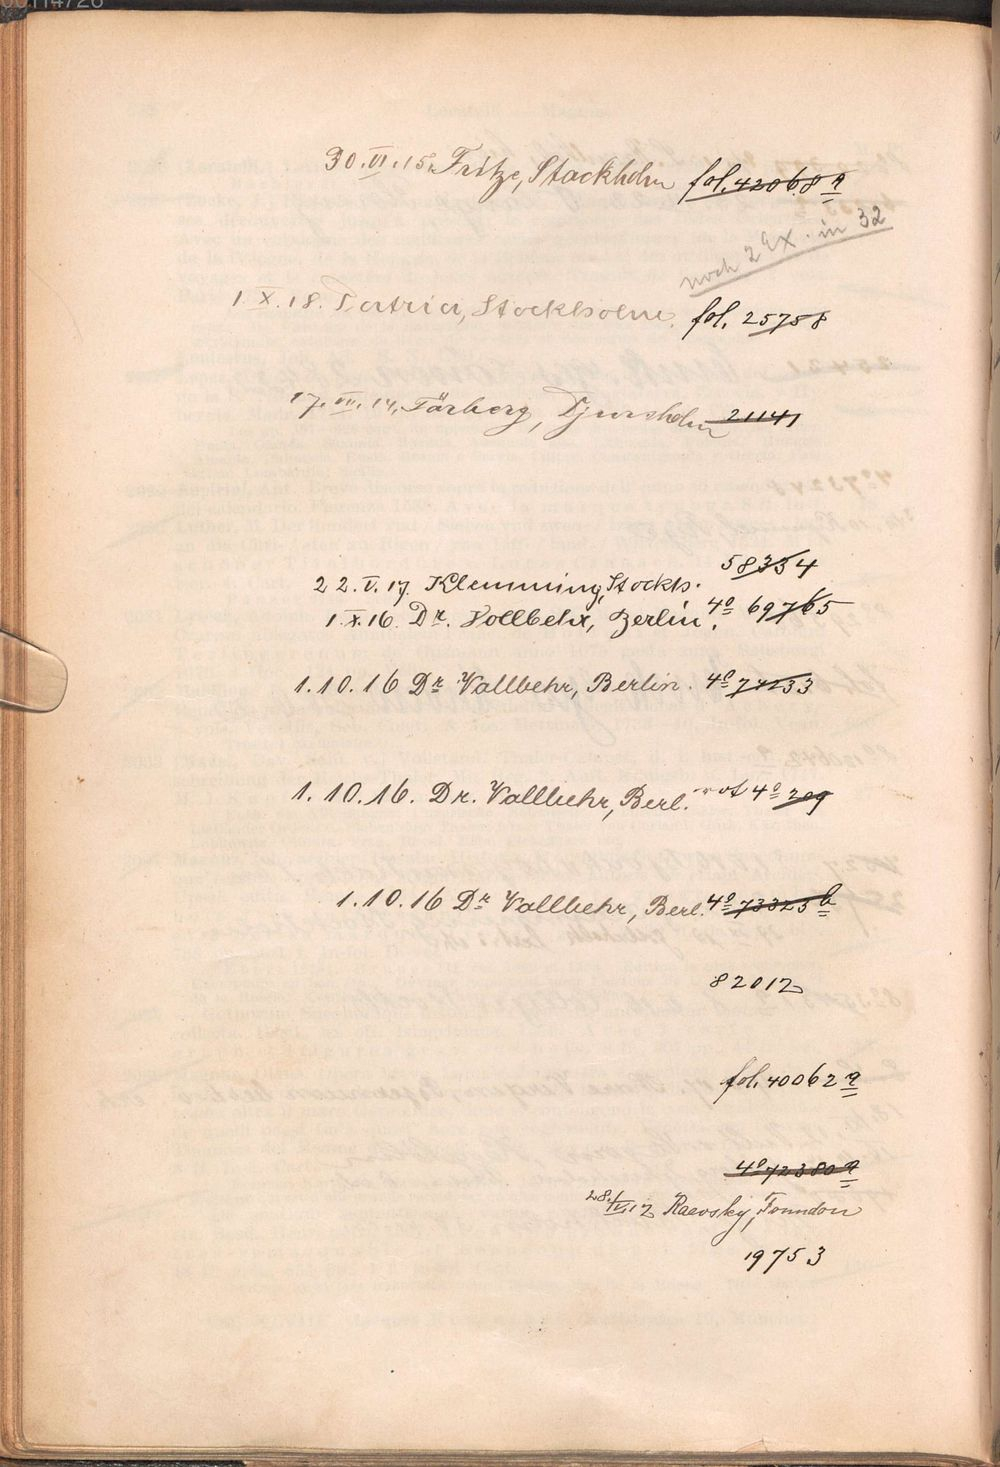 30.VI.15. Fritze, Stockholm fol. 42068 a
noch 2 Ex. in 32
1.X.18. Patria, Stockholm. fol. 25758
17.VII.14. Djursholm 21141
58354
22.V.17. Klemming, Stockh.
1.X.16. Dr. Vollbehr, Berlin. 4° 69765
1.10.16 Dr Vollbehr, Berlin. 4° 74233
1.10.16. Dr. Vollbehr, Berl. rot 4° 209
1.10.16 Dr Vollbehr, Berl. 4° 73325 b
82012
fol. 40062 a
4° 72380 a
Raevsky,
19753